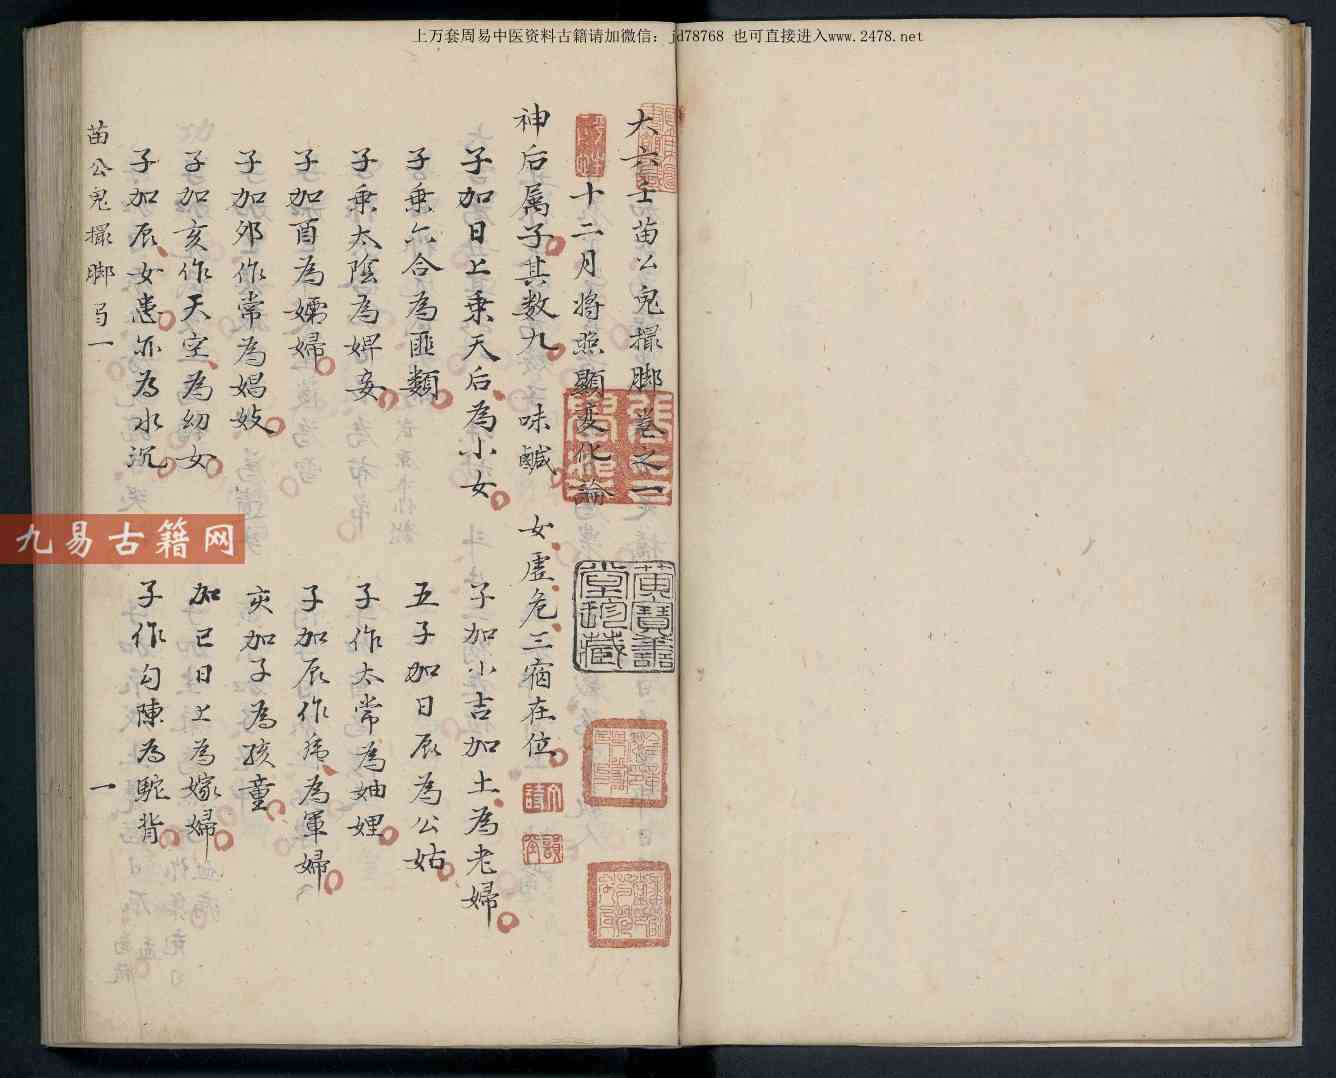 上万套周易中医资料古籍请加微信：jd78768 也可直接进入www.2478.net
大六壬苗公鬼撮脚卷之一
十二月将照顯变化論
神后属子其数九 味鹹 女虛危三宿在位
子加日上乗天后為小女 子加小吉加土為老婦
子乗六合為匪類 五子加日辰為公姑
子乗太陰為婢妾 子作太常為妯娌
子加酉為孀婦 子加辰作為軍婦
子加夘作常為娼妓 亥加子為孩童
子加亥作天空為幼女 加巳日上為嫁婦
子加辰女患亦為水沉 子作勾陳為駝背
苗公鬼撮脚 一
一
黄賛善堂珍藏
九易古籍网